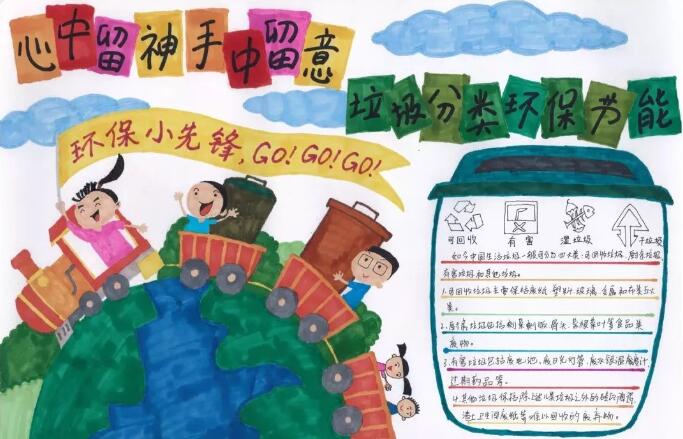 心中留神手中留意
垃圾分类环保节能
环保小先锋,GO!GO!GO!
可回收 有害 湿垃圾 干垃圾
如今中国生活垃圾一般可分为四大类:可回收垃圾、厨余垃圾
有害垃圾和其他垃圾。
1.可回收垃圾主要保括废纸、塑料、玻璃、金属和布类五大
类。
2.厨余垃圾包括剩菜剩饭、骨头、菜根菜叶等食品类
废物。
3.有害垃圾包括废电池、废日光灯管、废水银温度计、
过期药品等。
4.其他垃圾保括除上述几类垃圾之外的砖瓦陶瓷、
渣土卫生间废纸等难以回收的废弃物。